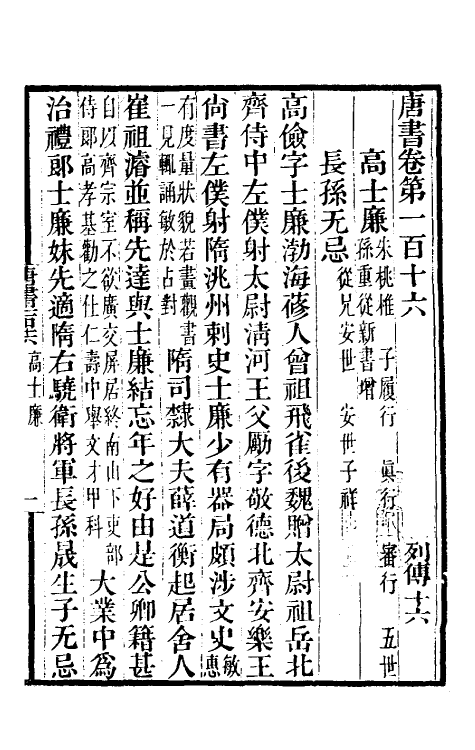 唐書卷第一百十六 列傳十六
高士廉 朱桃椎 子履行 眞行 審行 五世
孫重從新書增
長孫无忌 從兄安世 安世子祥
高儉字士廉渤海蓨人曾祖飛雀後魏贈太尉祖岳北
齊侍中左僕射太尉淸河王父勵字敬德北齊安樂王
尙書左僕射隋洮州刺史士廉少有器局頗涉文史敏惠
有度量狀貌若畫觀書
一見輒誦敏於占對隋司隸大夫薛道衡起居舍人
崔祖濬並稱先達與士廉結忘年之好由是公卿籍甚
自以齊宗室不欲廣交屏居終南山下吏部
侍郎高孝基勸之仕仁壽中舉文才甲科大業中為
治禮郎士廉妹先適隋右驍衛將軍長孫晟生子无忌
唐書百十六 高士廉 一